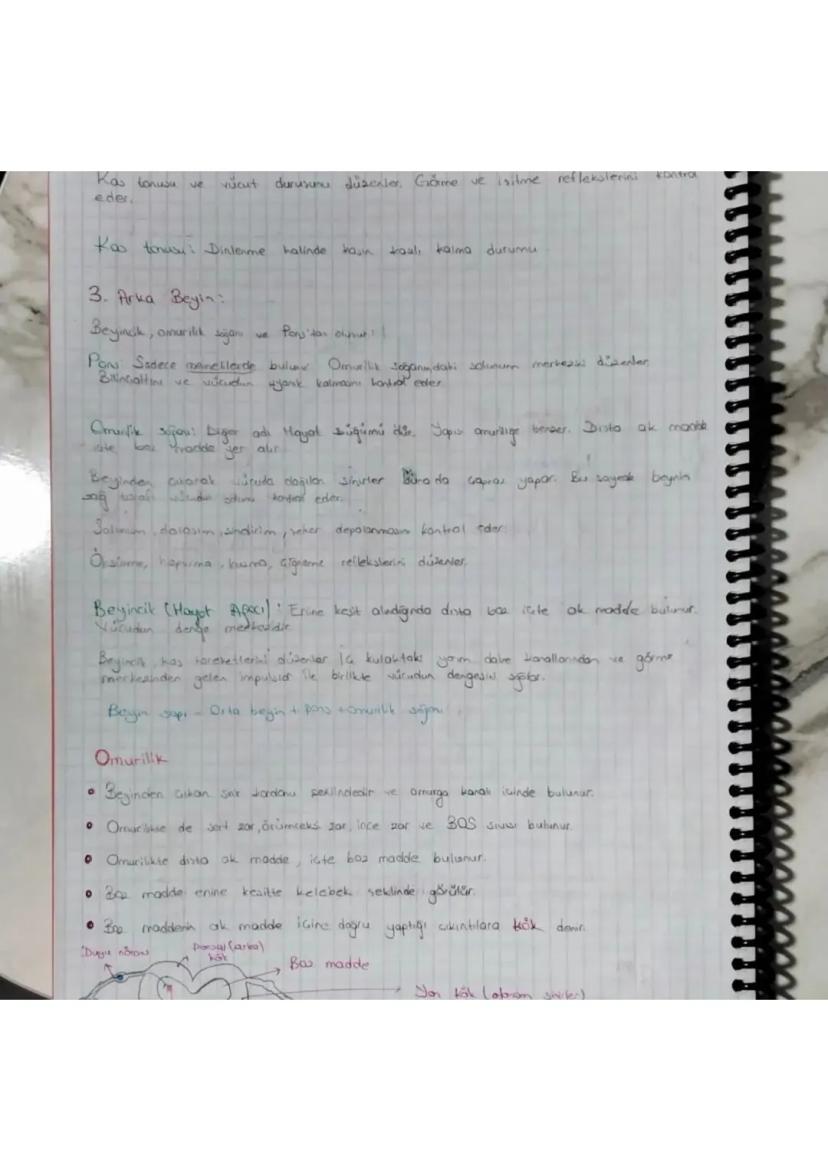 Kas tonusu ve vücut durusunu düzenler. Görme ve isitme reflekslerini kontrol
eder.
Kas tonusu: Dinlenme halinde kasın kasılı kalma durumu
3. Arka Beyin:
Beyincik, omurilik soğanı ve Pons'tan oluşur.
Pons Sadece memelilerde bulunur Omurilik soğanındaki solunum merkezini düzenler
Bilinçaltını ve vücudun uyanık kalmasını kontrol eder
Omurilik soğanı: Diğer adı Hayat Düğümü'dür. Yapısı omuriliğe benzer. Dışta ak madde
içte boz madde yer alır
Beyinden çıkarak vücuda dağılan sinirler Burada çapraz yapar. Bu sayede beynin
sağ tarafı vücudun solunu kontrol eder.
Solunum, dolaşım, sindirim, şeker depolanmasını kontrol eder.
Öksürme, hapsırma, kusma, çiğneme reflekslerini düzenler.
Beyincik (Hayat Ağacı): Enine kesit alındığında dışta boz içte ak madde bulunur.
Vücudun denge merkezidir
Beyincik, kas hareketlerini düzenler İç kulaktaki yarım daire kanallarından ve görme
merkezinden gelen impulslar ile birlikte vücudun dengesini sağlar.
Beyin sapı = Orta beyin + pons + omurilik soğanı
Omurilik
• Beyinden çıkan sinir kordonu şeklindedir ve omurga kanalı içinde bulunur.
• Omurilikte de sert zar, örümceksi zar, ince zar ve BOS sıvısı bulunur.
• Omurilikte dışta ak madde, içte boz madde bulunur.
• Boz madde enine kesitte kelebek şeklinde görülür.
• Boz maddenin ak madde içine doğru yaptığı çıkıntılara kök denir.
Duyu nöronu
Dorsal (arka)
kök
Boz madde
Yan kök (otonom sinirler)